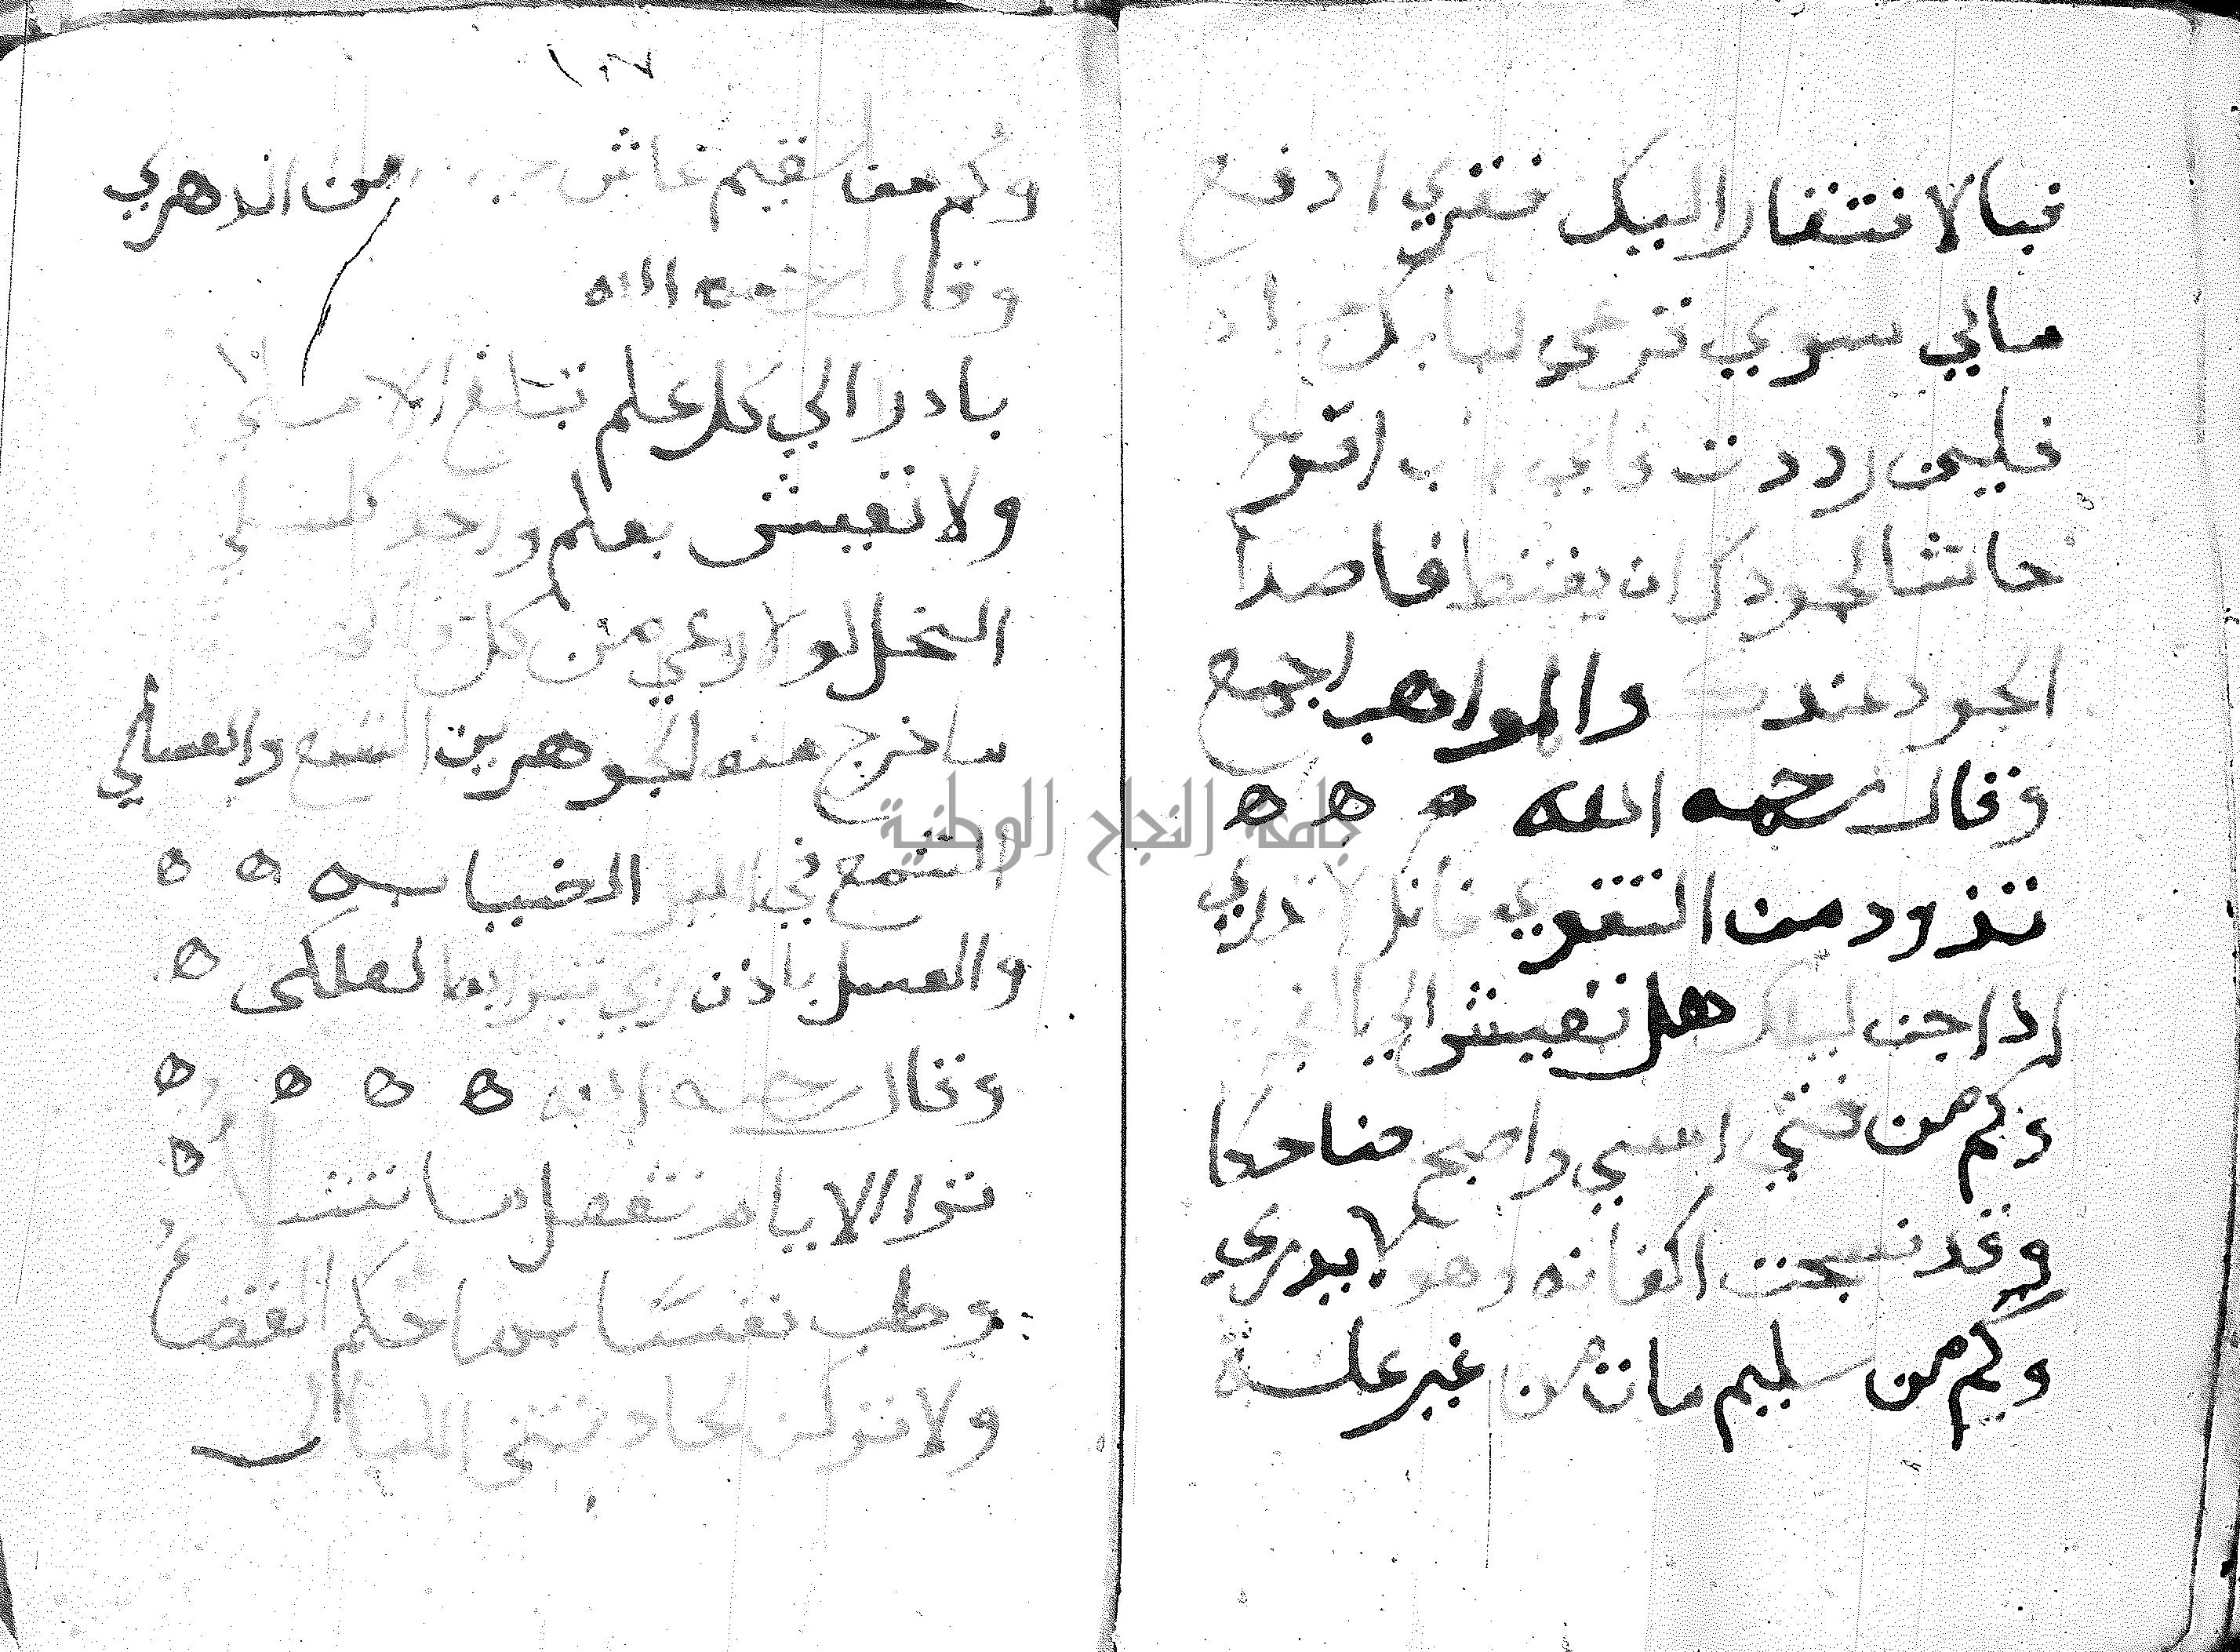 فبالافتقار اليك فقري ادفع
مالي سوي قرعي لبابك
فلين رددت فاي باب اقرع
حاشا لجودك ان يقنط قاصدا
الجود عندك والمواهب اجمع
وقال رحمه الله ه ه ه
تزود من التقوي فانك لا تدري
اذا جن ليلك هل تعيش الي الفجر
وكم من فتي امسي واصبح ضاحكا
وقد نسجت اكفانه وهو لا يدري
وكم من سليم مات من غير علة
١٠٧
وكم من سقيم عاش من الدهري
وقال رحمه الله
بادر الي كل علم تبلغ الاملي
ولا تعيش بعلم واحد كسلي
النحل لو لا رعي من كل
ما خرج منه الجوهرين الشمع والعسلي
الشمع في الليل الضيا به ه ه
والعسل باذن ربي تبرا بها العلل ه
وقال رحمه الله ه ه ه ه
ه
دع الايام تفعل ما تشا
وطب نفسا بما حكم القضا
ولا تكن لحادثتي الليالي
جامعة النجاح الوطنية